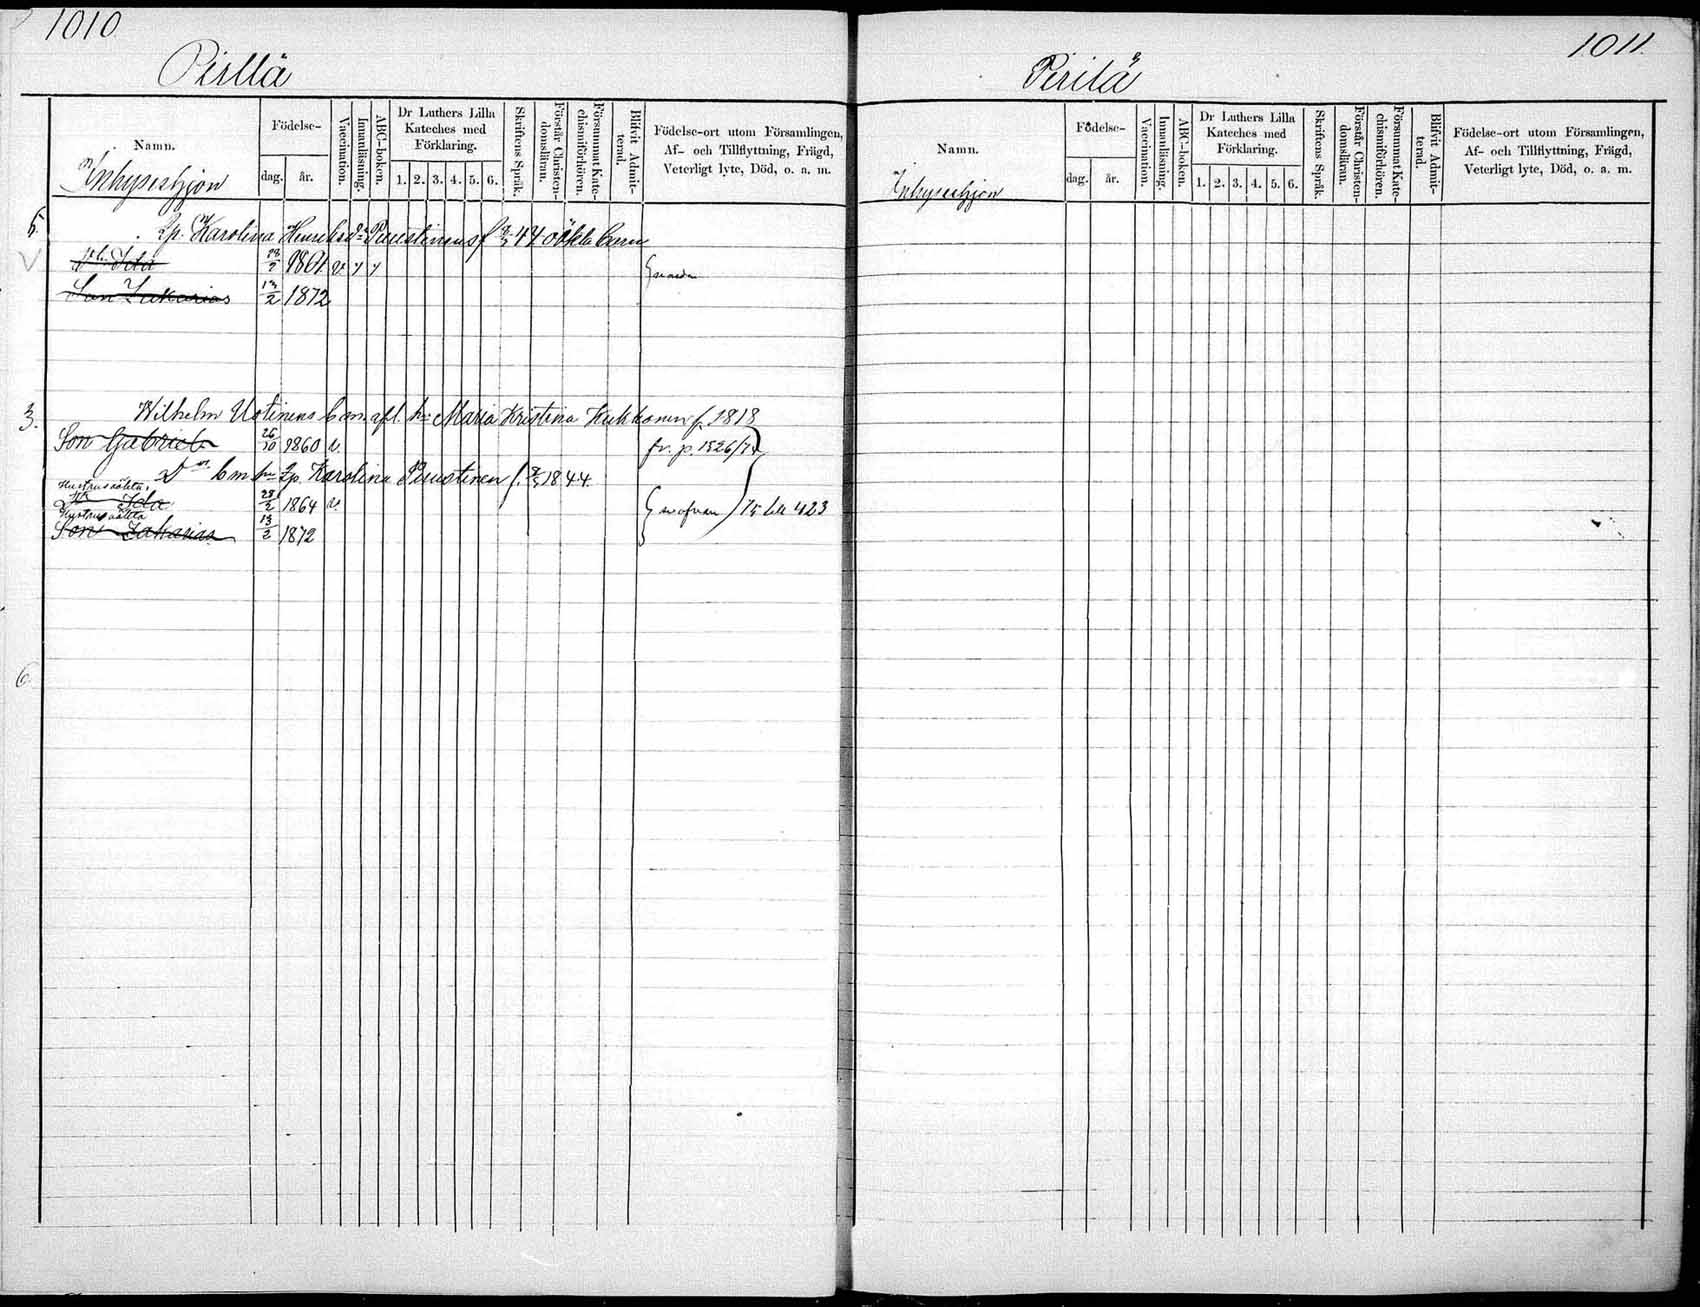 1010
Perilä
Namn.
Inhyseshjon
Födelse-
dag.
år.
Vaccination.
Innanläsning.
ABC-boken.
Dr Luthers Lilla
Kateches med
Förklaring.
1. 2. 3. 4. 5. 6.
Skriftens Språk.
Förstår Christen-
domsläran.
Försummat Kate-
chismiförhören.
Blifvit Admit-
terad.
Födelse-ort utom Församlingen,
Af- och Tillflyttning, Fräjgd,
Veterligt lyte, Död, o. a. m.
5.
Lp. Karolina Henriksd:r Puustinens f. 44 oäkta barn
Ida 28/2 1864 v y y
Son Zakarias 13/2 1872
3.
Wilhelm Ustinens b m afl. h: Maria Kristina Kukkonen f. 1818
Son Gabriel 26/10 1860 v. fr. p. 1526/74
D:o b m Lp. Karolina Puustinen f. 1844.
Hustrus oäkta
Ida 28/2 1864 v. 75 till 423
Hustrus oäkta
Son Zakarias 13/2 1872
6
1011.
Perilä
Namn.
Inhyseshjon
Födelse-
dag.
år.
Vaccination.
Innanläsning.
ABC-boken.
Dr Luthers Lilla
Kateches med
Förklaring.
1. 2. 3. 4. 5. 6.
Skriftens Språk.
Förstår Christen-
domsläran.
Försummat Kate-
chismiförhören.
Blifvit Admit-
terad.
Födelse-ort utom Församlingen,
Af- och Tillflyttning, Fräjgd,
Veterligt lyte, Död, o. a. m.